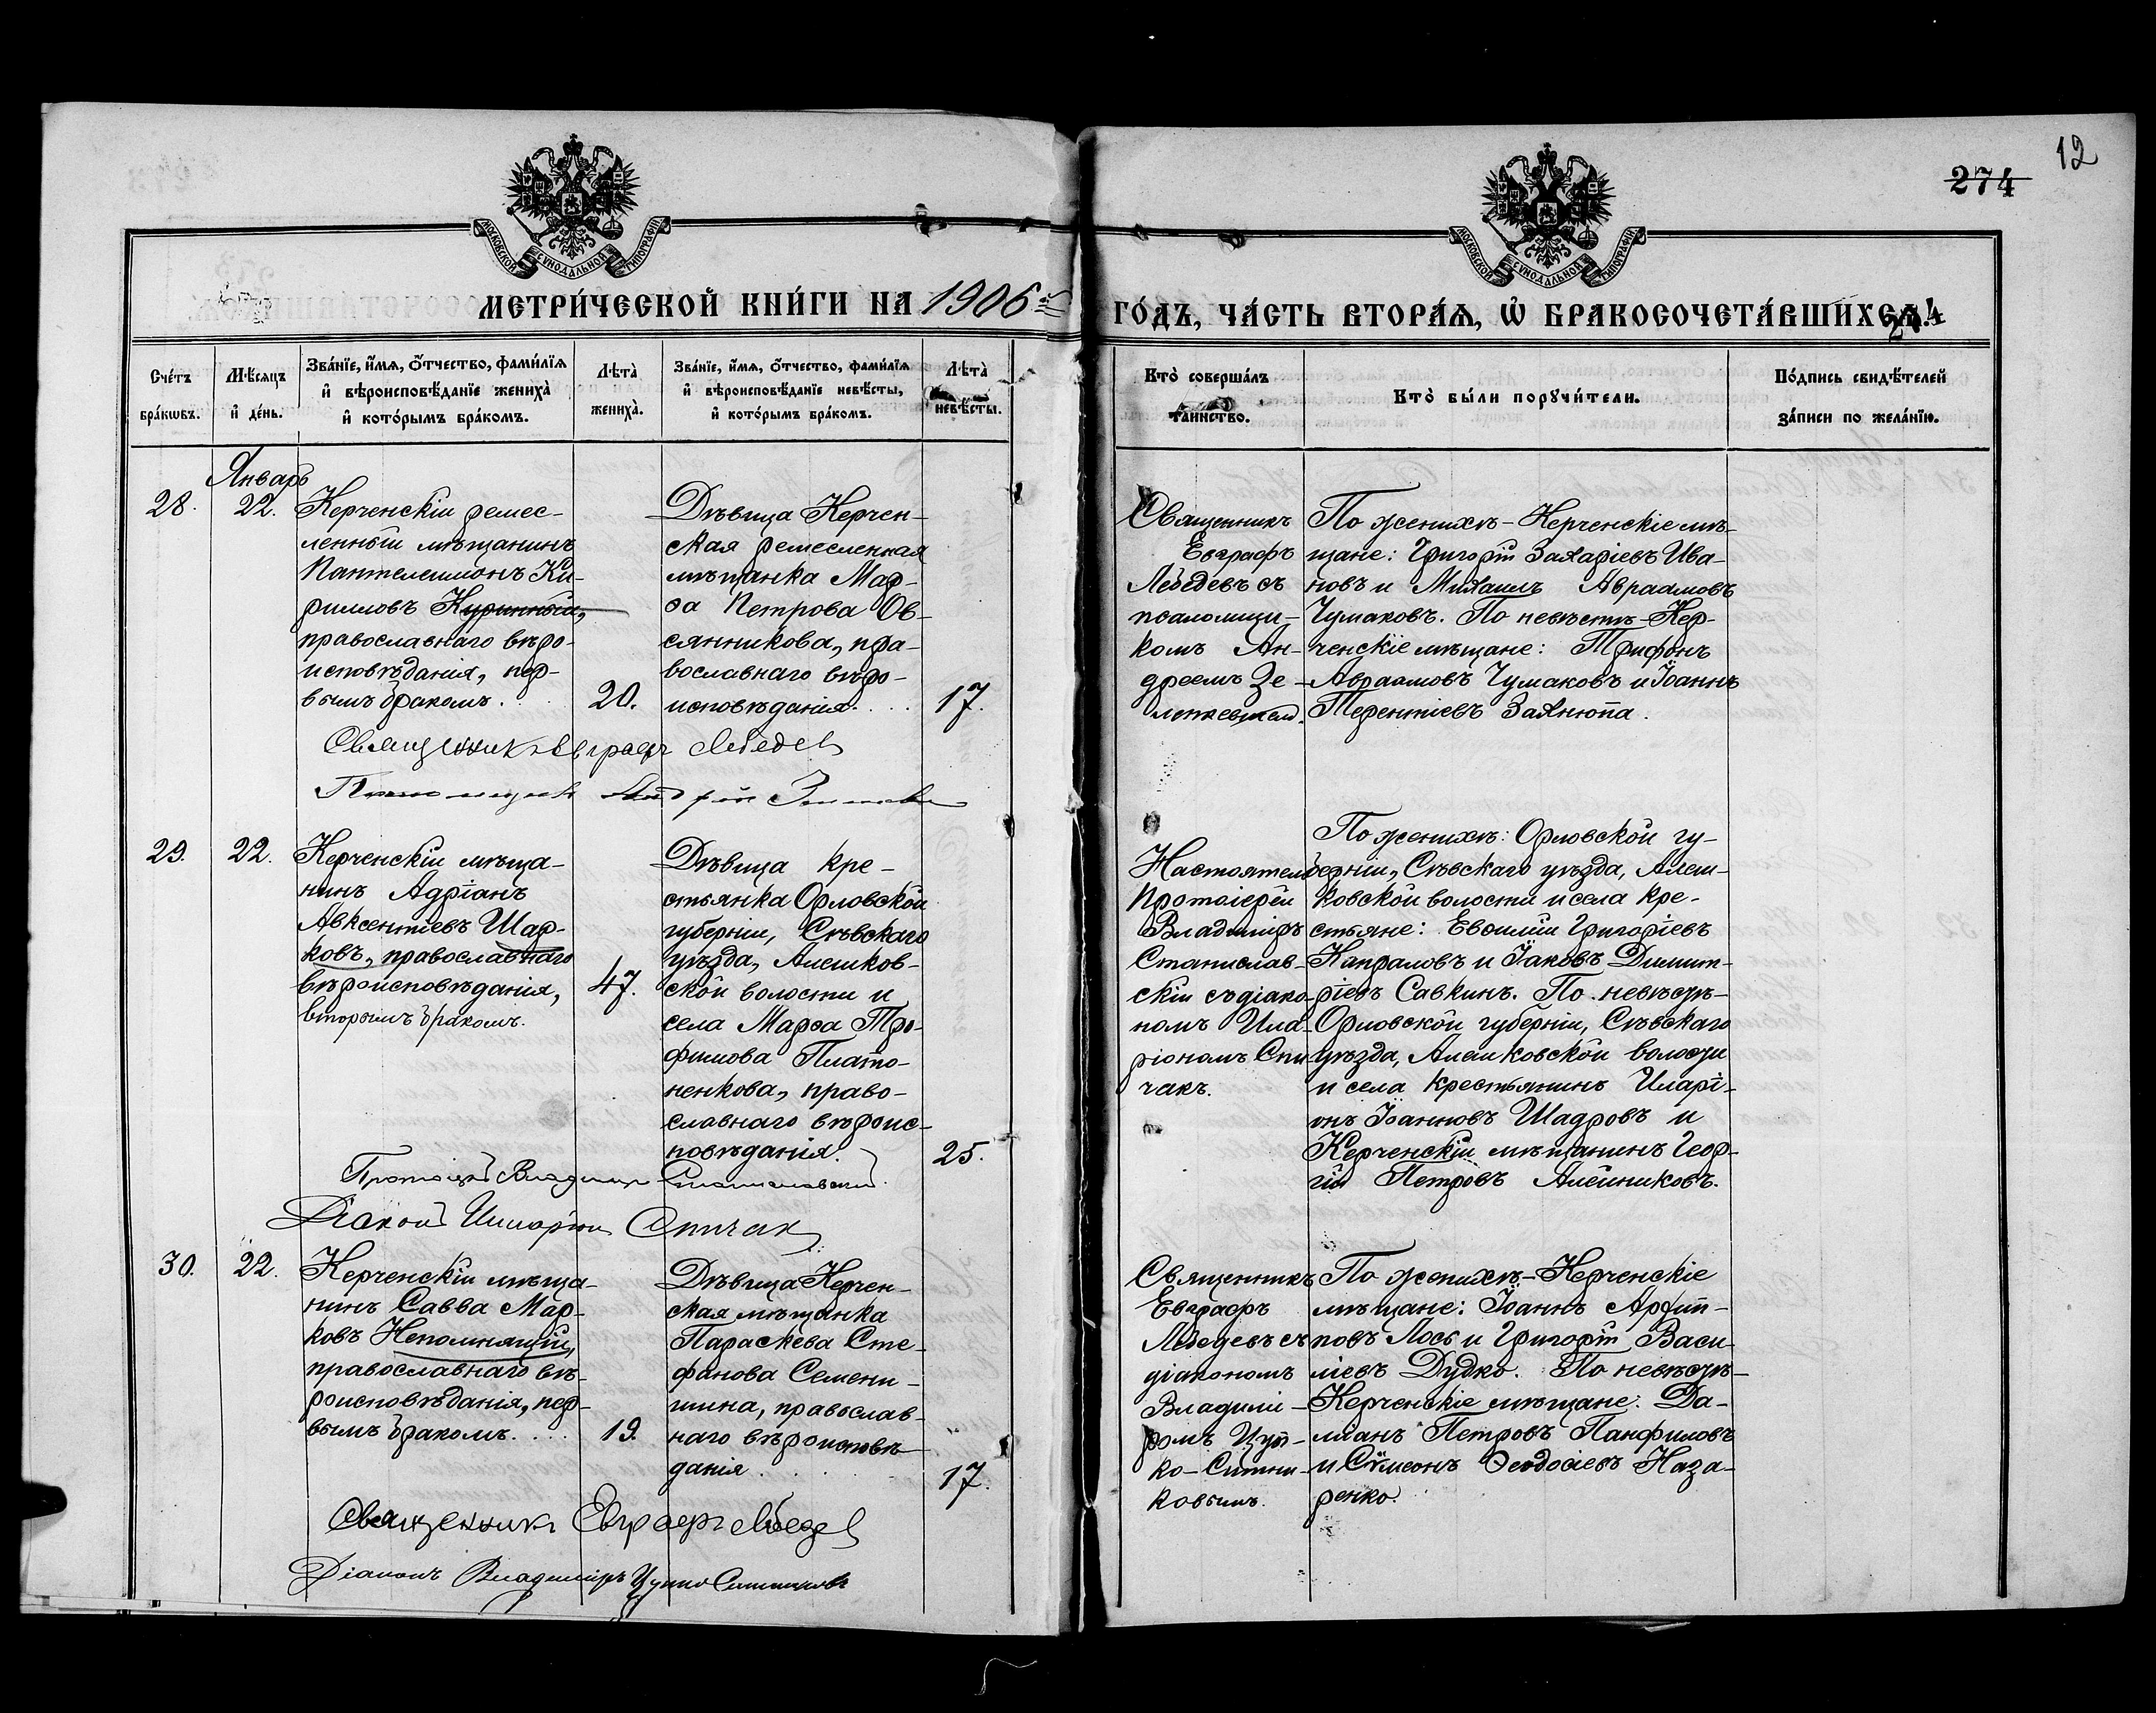 12
274
МОСКОВСКОЙ СѴНОДАЛЬНОЙ ТИПОГРАФІИ
МОСКОВСКОЙ СѴНОДАЛЬНОЙ ТИПОГРАФІИ
МЕТРИ́ЧЕСКОЙ КНИ́ГИ НА 1906 й
ГО́ДЪ, ЧА́СТЬ ВТОРА́Я, Ѡ҆ БРАКОСОЧЕТА́ВШИХСЯ.
274
Сче́тъ
бра́кѡвъ.
Мѣ́сяцъ
и҆ де́нь.
Зва́нїе, и҆́мя, ѻ҆́тчество, фами́лїя
и҆ вѣроисповѣ́данїе жениха̀
и҆ кото́рымъ бра́комъ.
Лѣта̀
жениха̀.
Зва́нїе, и҆́мя, ѻ҆́тчество, фами́лїя
и҆ вѣроисповѣ́данїе невѣ́сты,
и҆ кото́рымъ бра́комъ.
Лѣта̀
невѣ́сты.
Кто̀ соверша́лъ
таинство.
Кто̀ бы́ли порꙋчи́тели.
По́дпись свидѣ́телей
за́писи по жела́нїю.
Январь
28.
22.
Керченскій ремес-
ленный мѣщанинъ
Пантелеимонъ Ки-
рилловъ Куринный,
православнаго вѣро-
исповѣданія, пер-
вымъ бракомъ. . .
20.
Дѣвица Керчен-
ская ремесленная
мѣщанка Мар-
ѳа Петрова Ов-
сянникова, пра-
вославнаго вѣро-
исповѣданія. . .
17.
Священникъ
Евграфъ
Лебедевъ съ
псаломщи-
комъ Ан-
дреемъ Зе-
По женихѣ - Керченскіе мѣ-
щане: Григорій Захаріевъ Ива-
новъ и Михаилъ Авраамовъ
Чумаковъ. По невѣстѣ - Кер-
ченскіе мѣщане: Трифонъ
Авраамовъ Чумаковъ и Іоаннъ
Терентіевъ Захнюпа.
Священникъ Евграфъ Лебедевъ
Псаломщикъ Андрей
29.
22.
Керченскій мѣща-
нинъ Адріанъ
Авксентіевъ Шар-
ковъ, православнаго
вѣроисповѣданія,
вторымъ бракомъ.
47.
Дѣвица кре-
стьянка Орловской
губерніи, Сѣвскаго
уѣзда, Алешков-
ской волости и
села Марѳа Тро-
фимова Плато-
ненкова, право-
славнаго вѣроис-
повѣданія.
25.
Настоятель
Протоіерей
Владиміръ
Станислав-
скій съ діако-
номъ Ила-
ріономъ Спи
чакъ.
По женихѣ: Орловской гу-
берніи, Сѣвскаго уѣзда, Алеш-
ковской волости и села кре-
стьяне: Евѳимій Григоріевъ
Капраловъ и Іаковъ Димит-
ріевъ Савкинъ. По невѣстѣ-
Орловской губерніи, Сѣвскаго
уѣзда, Алешковской волости
и села крестьянинъ Иларі-
онъ Іоанновъ Шадровъ и
Керченскій мѣщанинъ Геор-
гій Петровъ Алейниковъ.
Протоіерей Владимиръ Станиславскій
Діаконъ Иларіонъ Спичакъ
30.
22.
Керченскій мѣща-
нинъ Савва Мар-
ковъ Непомнящій,
православнаго вѣ-
роисповѣданія, пер-
вымъ бракомъ. . . .
19.
Дѣвица Керчен-
ская мѣщанка
Параскева Сте-
фанова Семени-
шина, православ-
наго вѣроисповѣ-
данія. . . .
17.
Священникъ
Евграфъ
Лебедевъ съ
діакономъ
Владимі-
ромъ Цуп-
ко-Ситни-
ковымъ.
По женихѣ - Керченскіе
мѣщане: Іоаннъ Архип-
повъ Лось и Григорій Васи
ліевъ Дудко. По невѣстѣ-
Керченскіе мѣщане: Да-
міанъ Петровъ Панфиловъ
и Сѵмеонъ Ѳеодосіевъ Наза-
ренко.
Священникъ Евграфъ Лебедев
Діаконъ Владиміръ Цупко Ситниковъ